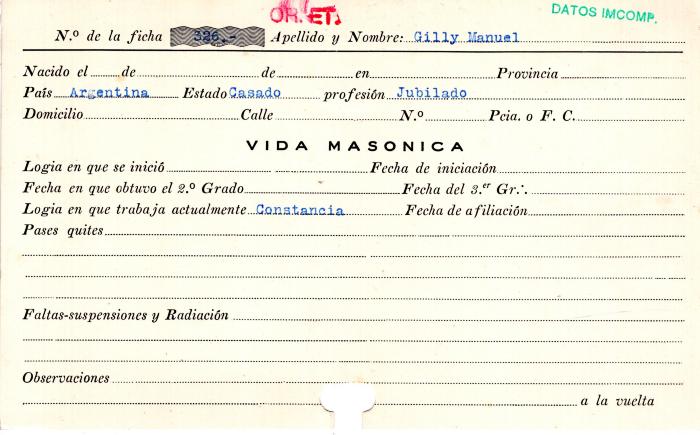 OR.·. ET.·.
DATOS IMCOMP.
N.º de la ficha 326.- Apellido y Nombre: Gilly Manuel
Nacido el de de en Provincia
País Argentina Estado Casado profesión Jubilado
Domicilio Calle N.º Pcia. o F. C.
VIDA MASONICA
Logia en que se inició Fecha de iniciación
Fecha en que obtuvo el 2.º Grado Fecha del 3.er Gr.·.
Logia en que trabaja actualmente Constancia Fecha de afiliación
Pases quites
Faltas-suspensiones y Radiación
Observaciones
a la vuelta